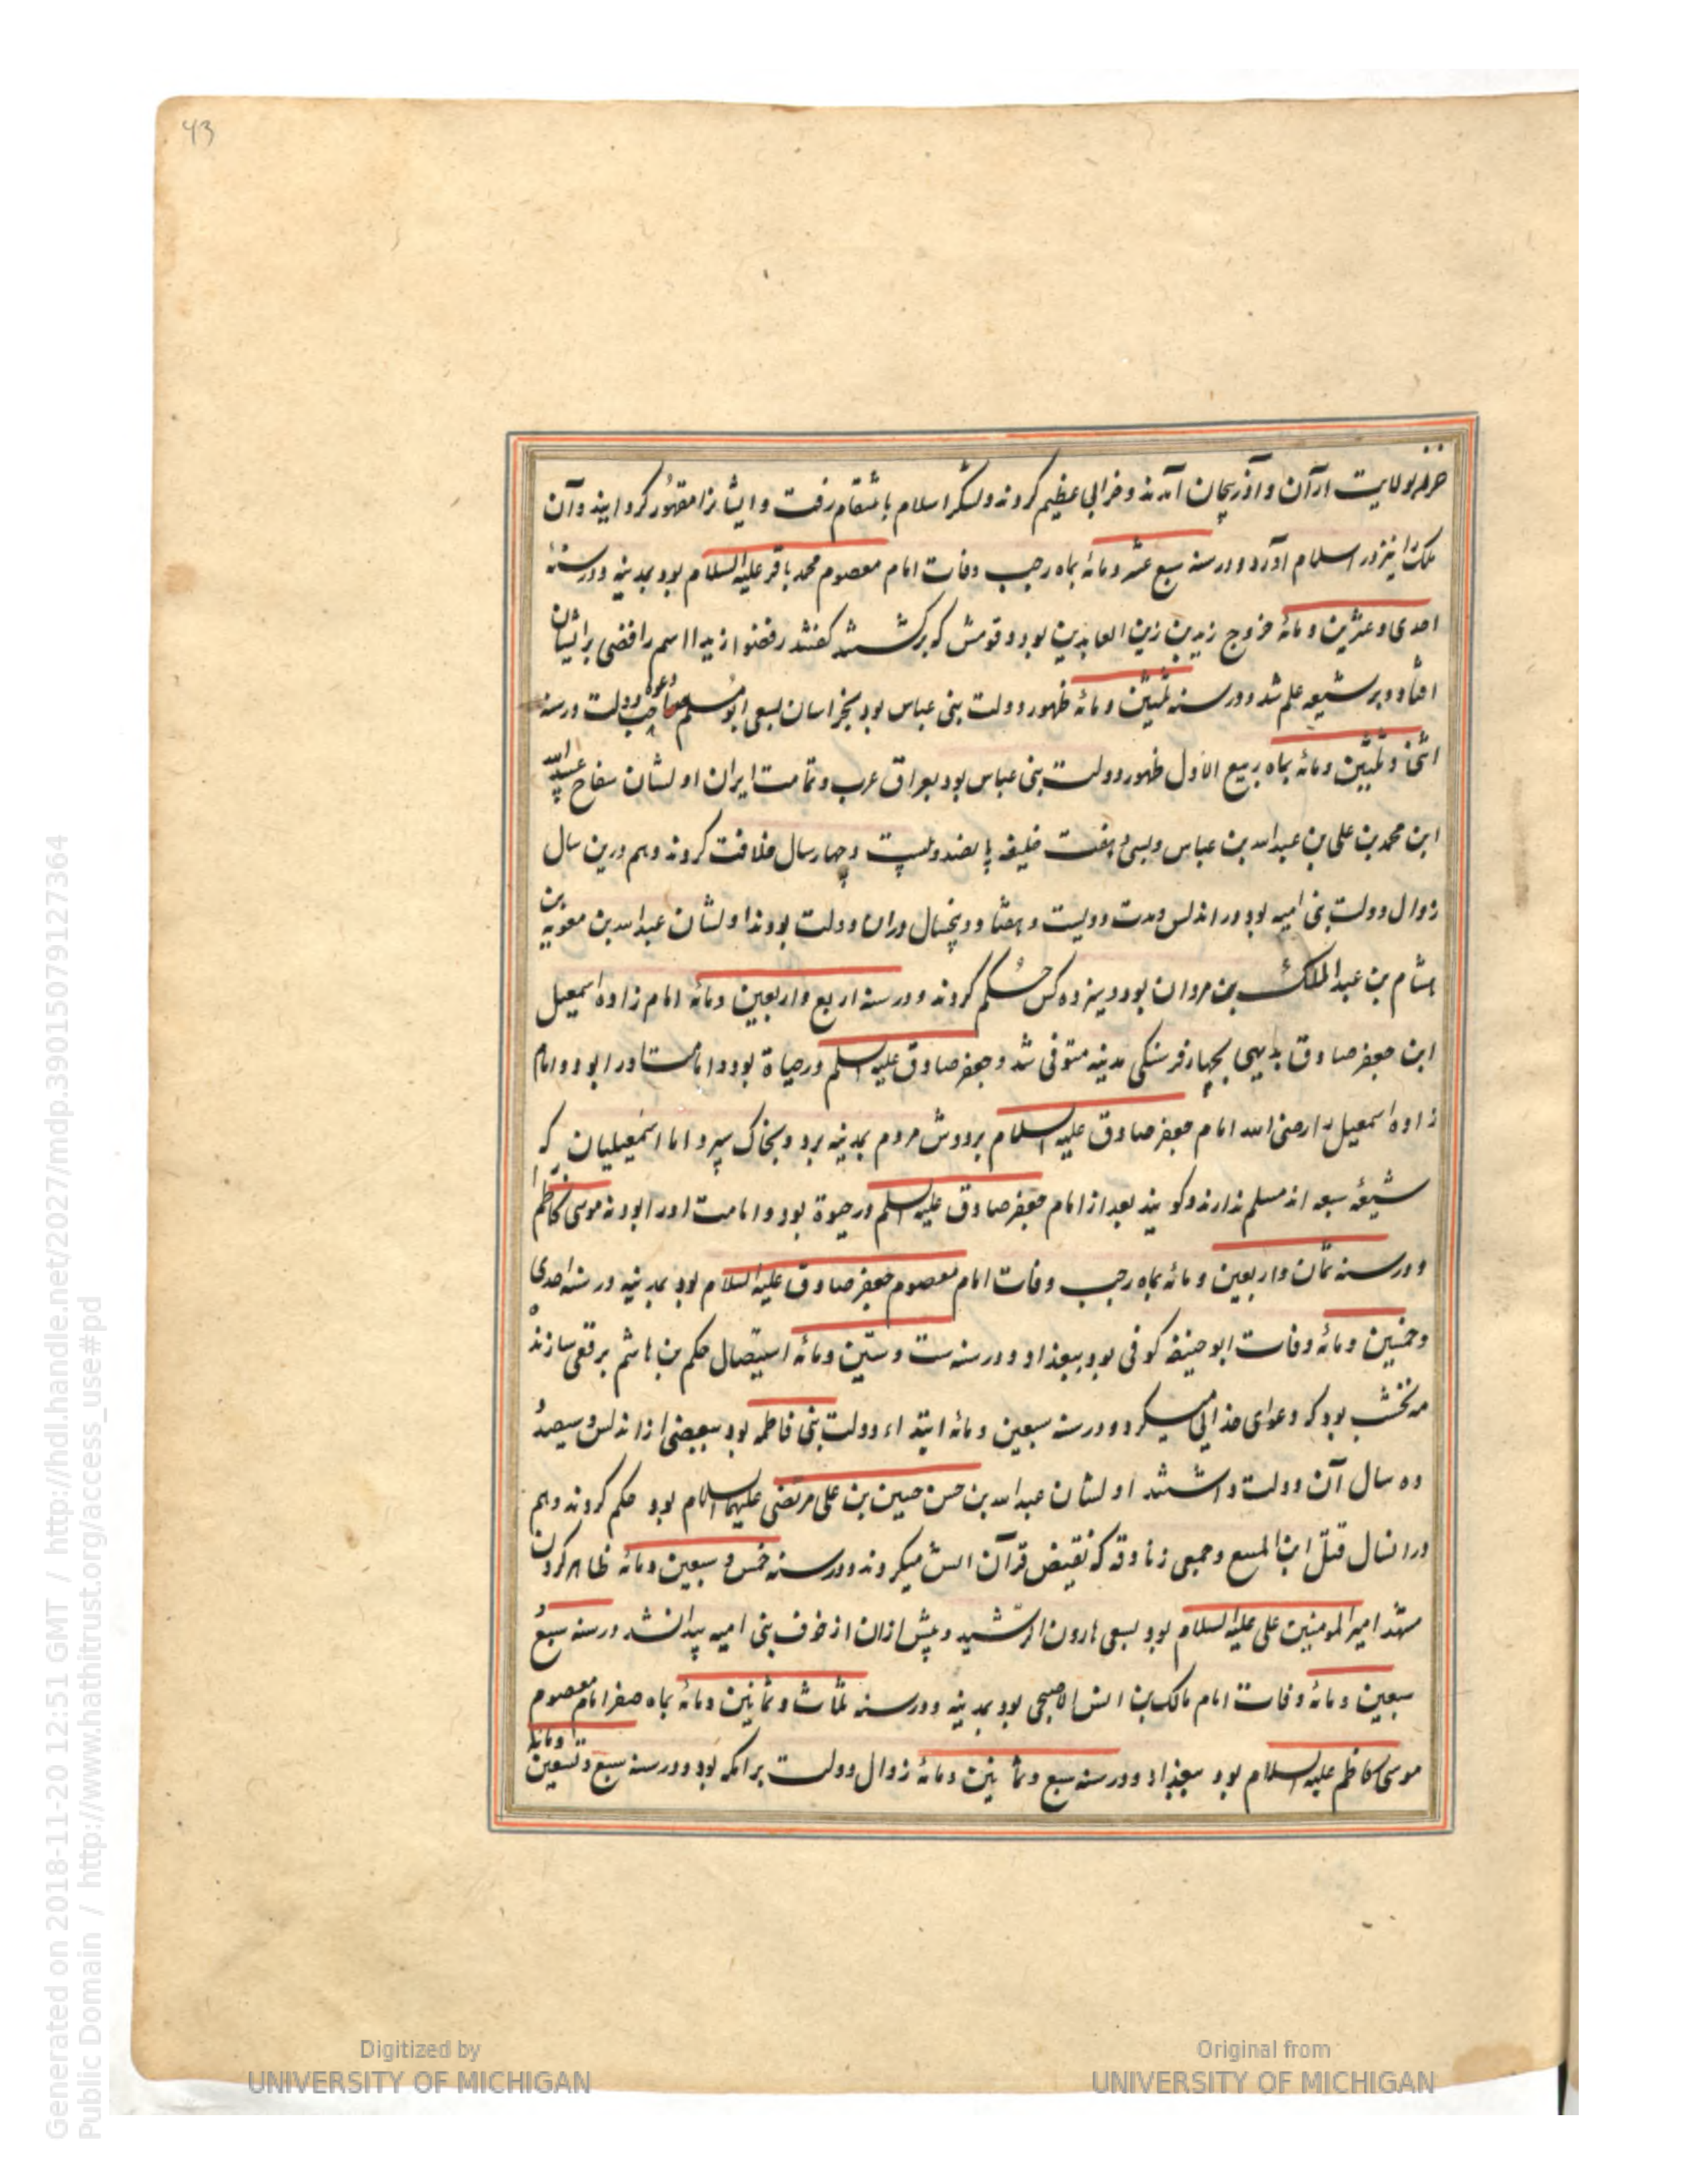 43
خزر بولایت ارّان و آذربیجان آمدند و خرابی عظیم کردند و لشکر اسلام بانتقام رفت و ایشانرا مقهور کردانید و آن
ملک را نیز در اسلام آورد و در سنه سبع عشر و مائه بماه رجب وفات امام معصوم محمد باقر علیه السلام بود بمدینه و در سنهٔ
احدی و عشرین و مائه خروج زید بن زین العابدین بود و قومش که برکشتند کفتند رفضوا زیدا اسم رافضی بر ایشان
افتاد و بر شیعه علم شد و در سنه ثلثین و مائه ظهور دولت بنی عباس بود بخراسان بسعی ابو مسلم صاحب دعوه دولت در سنه
اثنی و ثلثین و مائه بماه ربیع الاول ظهور دولت بنی عباس بود بعراق عرب و تمامت ایران اولشان سفاح عبد الله
ابن محمد بن علی بن عبد الله بن عباس و سی هفت خلیفه پانصد و بیست و چهار سال خلافت کردند و هم درین سال
زوال دولت بنی امیه بود و در اندلس مدت دویست و هشتاد و پنجسال دران دولت بودند اولشان عبد الله بن معویه بن
هشام بن عبد الملک بن مروان بود و سیزده کس حکم کردند و در سنه اربع و اربعین و مائه امام زاده اسمعیل
ابن جعفر صادق بدیهی بچهار فرسنکی مدینه متوفی شد و جعفر صادق علیه السلم در حیاة بود و امامت او را بود و امام
زاده اسمعیل را رضی الله امام جعفر صادق علیه السلام بردوش مردم بمدینه برد و بخاک سپرد اما اسمعیلیان که
شیعهٔ سبعه اند مسلم ندارند و کویند بعد از امام جعفر صادق علیه السلم در حیوة بود و امامت او را بود نه موسی کاظم را
و در سنه ثمان و اربعین و مائه بماه رجب وفات امام معصوم جعفر صادق علیه السلام بود بمدینه در سنه احدی
و خمسین و مائه وفات ابو حنیفه کوفی بود ببغداد و در سنه ست و ستین و مائه استیصال حکم بن هاشم برقعی سازنده
مه نخشب بود که دعوای خدایی میکرد و در سنه سبعین و مائه ابتداء دولت بنی فاطمه بود ببعضی از اندلس و سیصد و
ده سال آن دولت داشتند اولشان عبد الله بن حسن حسین بن علی مرتضی علیهما السلام بود حکم کردند و هم
در انسال قتل ابن المسع و جمعی زنادقه که نقیض قرآن انشا میکردند و در سنه خمس و سبعین و مائه ظاهر کردن
مشهد امیر المومنین علی علیه السلام بود بسعی هارون الرشید و پیش ازان از خوف بنی امیه پیدا نشد در سنه سبع و
سبعین و مائه وفات امام مالک بن انس الاصبحی بود بمدینه و در سنه ثلاث و ثمانین و مائه بماه صفر امام معصوم
موسی کاظم علیه السلام بود ببغداد و در سنه سبع و ثمانین و مائه زوال دولت برامکه بود و در سنه سبع و تسعین و مائه
Digitized by
UNIVERSITY OF MICHIGAN
Original from
UNIVERSITY OF MICHIGAN
Generated on 2018-11-20 12:51 GMT / http://hdl.handle.net/2027/mdp.39015079127364
Public Domain / http://www.hathitrust.org/access_use#pd